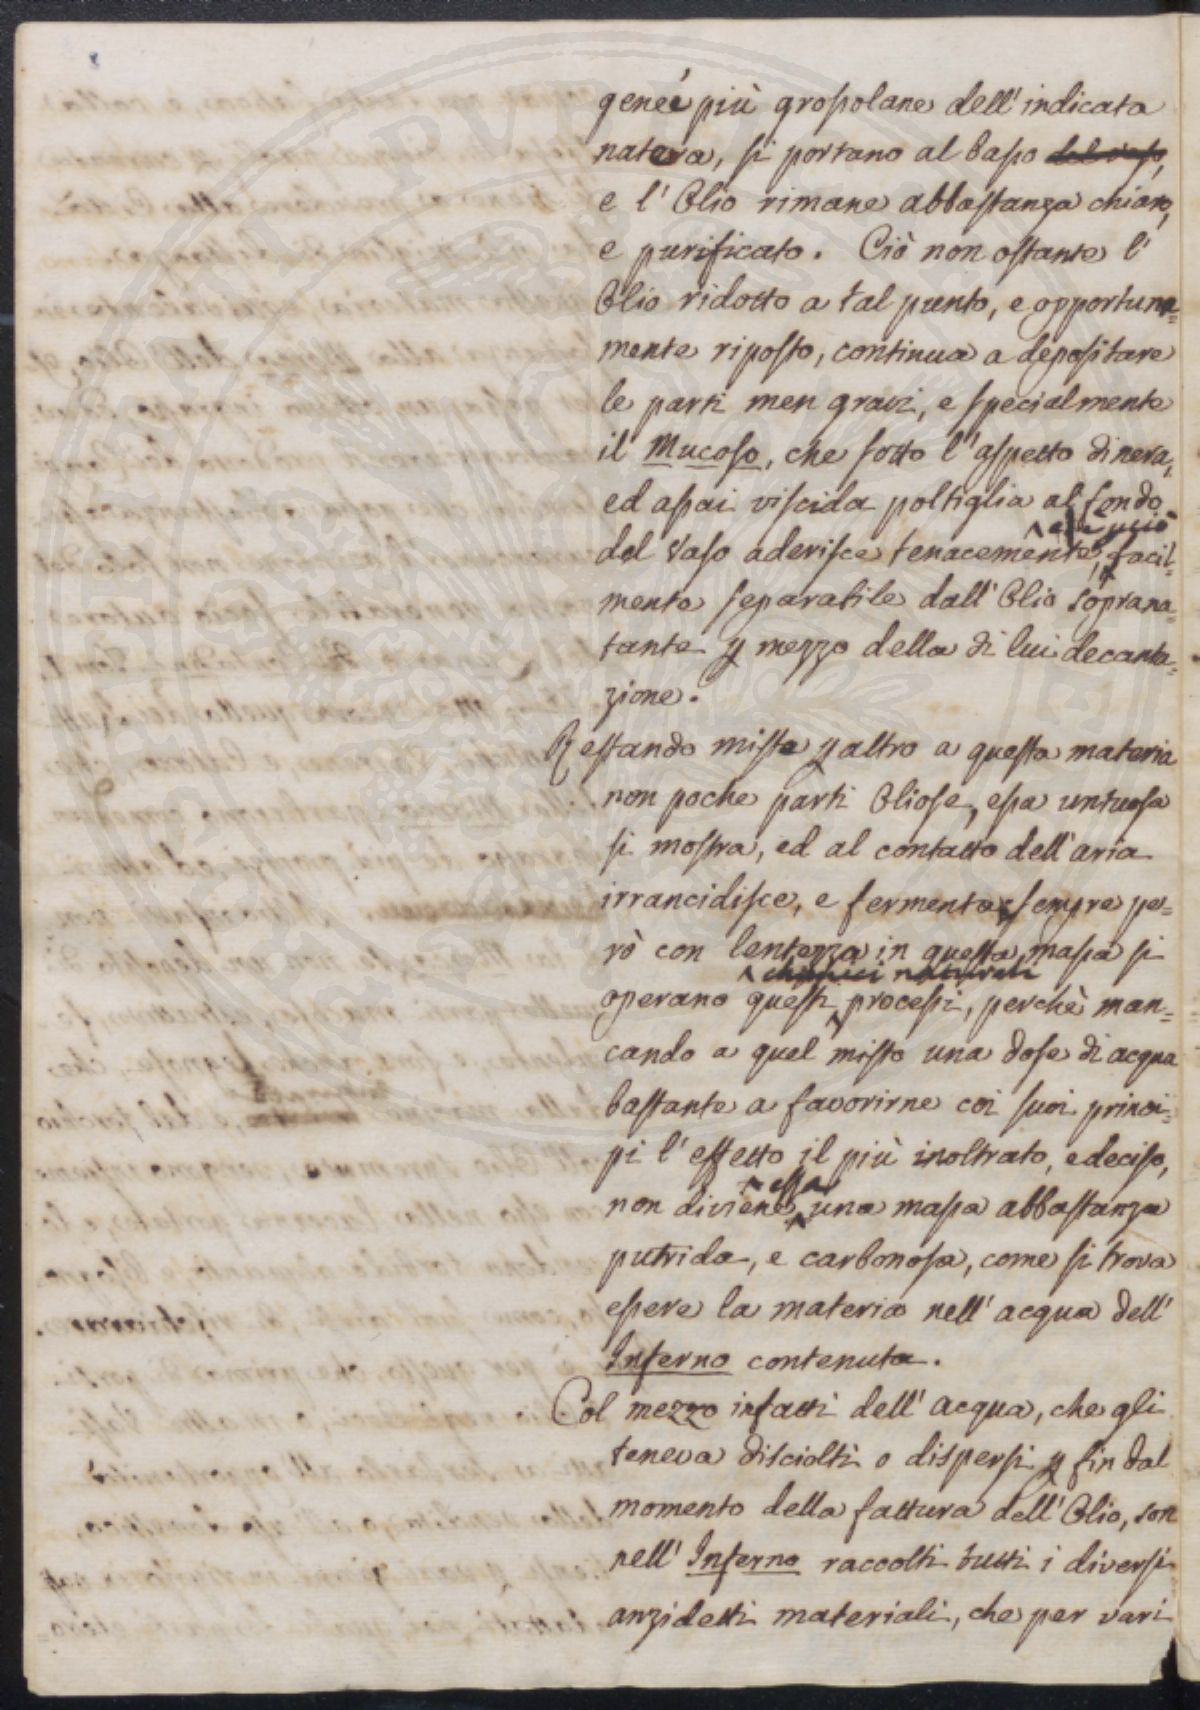 geneé più grossolane dell' indicata
natura, si portano al basso del vaso,
e l' Olio rimane abbastanza chiaro,
e purificato. Ciò non ostante l'
Olio ridotto a tal punto, e opportuna=
mente riposto, continua a depositare
le parti men gravi, e specialmente
il Mucoso, che sotto l' aspetto di nera,
ed assai viscida poltiglia al fondo
del Vaso aderisce tenacemente, facil=
mente separabile dall' Olio soprana=
tante p mezzo della di lui decanta=
zione.
Restando mista p altro a questa materia
non poche parti Oliose, essa untuosa
si mostra, ed al contatto dell' aria
irrancidisce, e fermenta; sempre pe=
rò con lentezza in questa massa si
chimici naturali
operano questi processi, perchè man=
cando a quel misto una dose di acqua
bastante a favorirne coi suoi princi=
pi l' effetto il più inoltrato, e deciso,
essa
non diviene una massa abbastanza
putrida, e carbonosa, come si trova
essere la materia nell' acqua dell'
Inferno contenuta.
Col mezzo infatti dell' acqua, che gli
teneva disciolti o dispersi p fin dal
momento della fattura dell' Olio, son
nell' Inferno raccolti tutti i diversi
anzidetti materiali, che per vari